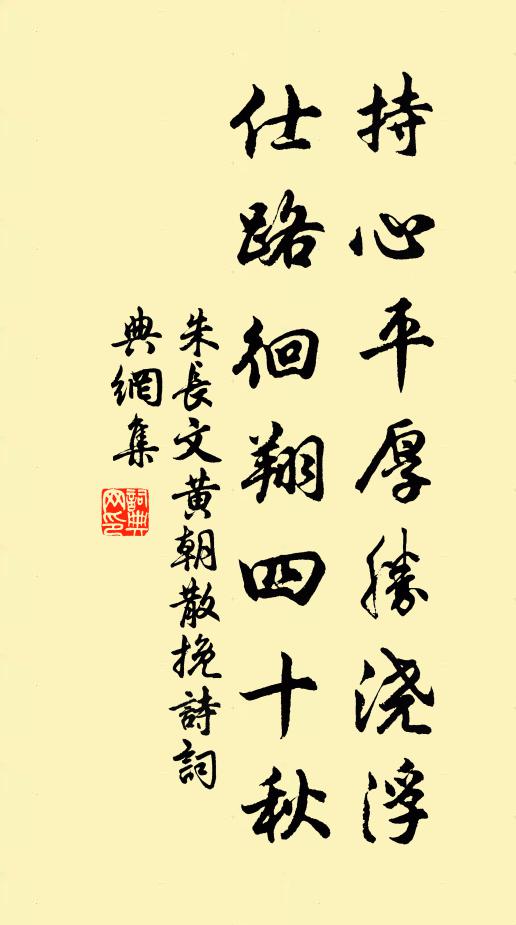 持心平厚勝浇浮
仕路徊翔四十秋
朱長文黄朝散挽詩詞
典網集
詞典
网印